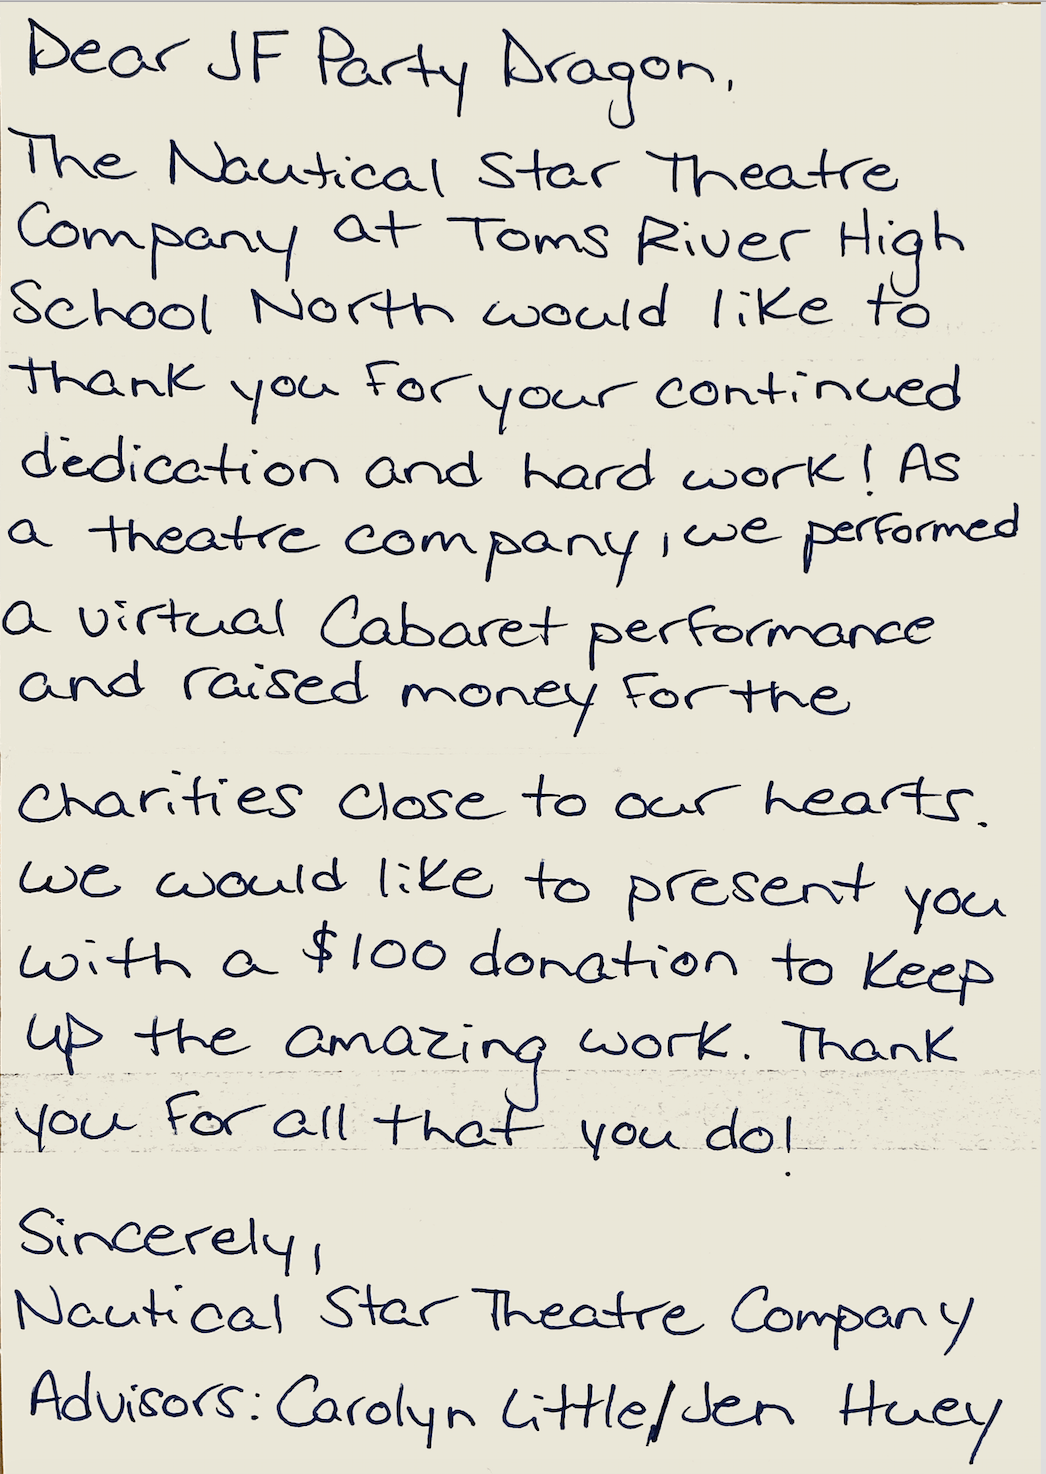 Dear JF Party Dragon,
The Nautical Star Theatre
Company at Toms River High
School North would like to
thank you for your continued
dedication and hard work! As
a theatre company, we performed
a virtual Cabaret performance
and raised money for the
charities close to our hearts.
We would like to present you
with a $100 donation to keep
up the amazing work. Thank
you for all that you do!
Sincerely,
Nautical Star Theatre Company
Advisors: Carolyn Little/Jen Huey